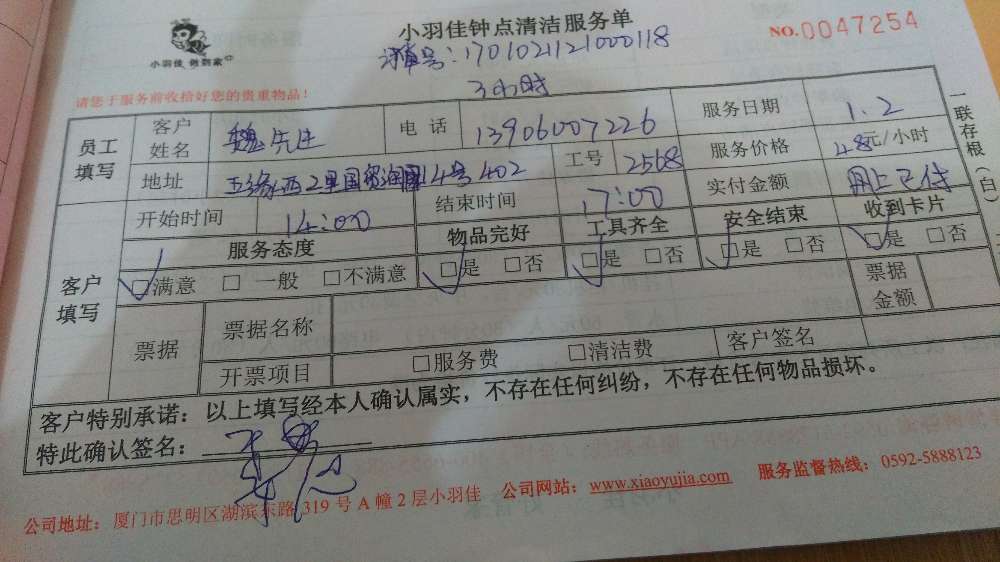 小羽佳钟点清洁服务单
NO.0047254
小羽佳 做到家
单号：1701021121000118
3小时
请您于服务前收拾好您的贵重物品！
员工填写 客户姓名 魏先生 电话 13906007226 服务日期 1.2
地址 五缘西二里国贸润园14号402 工号 2568 服务价格 48元/小时
开始时间 14:00 结束时间 17:00 实付金额 网上已付
客户填写 服务态度 物品完好 工具齐全 安全结束 收到卡片
□满意 □一般 □不满意 □是 □否 □是 □否 □是 □否 □是 □否
票据 票据名称 票据金额
开票项目 □服务费 □清洁费 客户签名
客户特别承诺：以上填写经本人确认属实，不存在任何纠纷，不存在任何物品损坏。
特此确认签名：
公司地址：厦门市思明区湖滨东路319号A幢2层小羽佳 公司网站：www.xiaoyujia.com 服务监督热线：0592-5888123
一联存根（白）